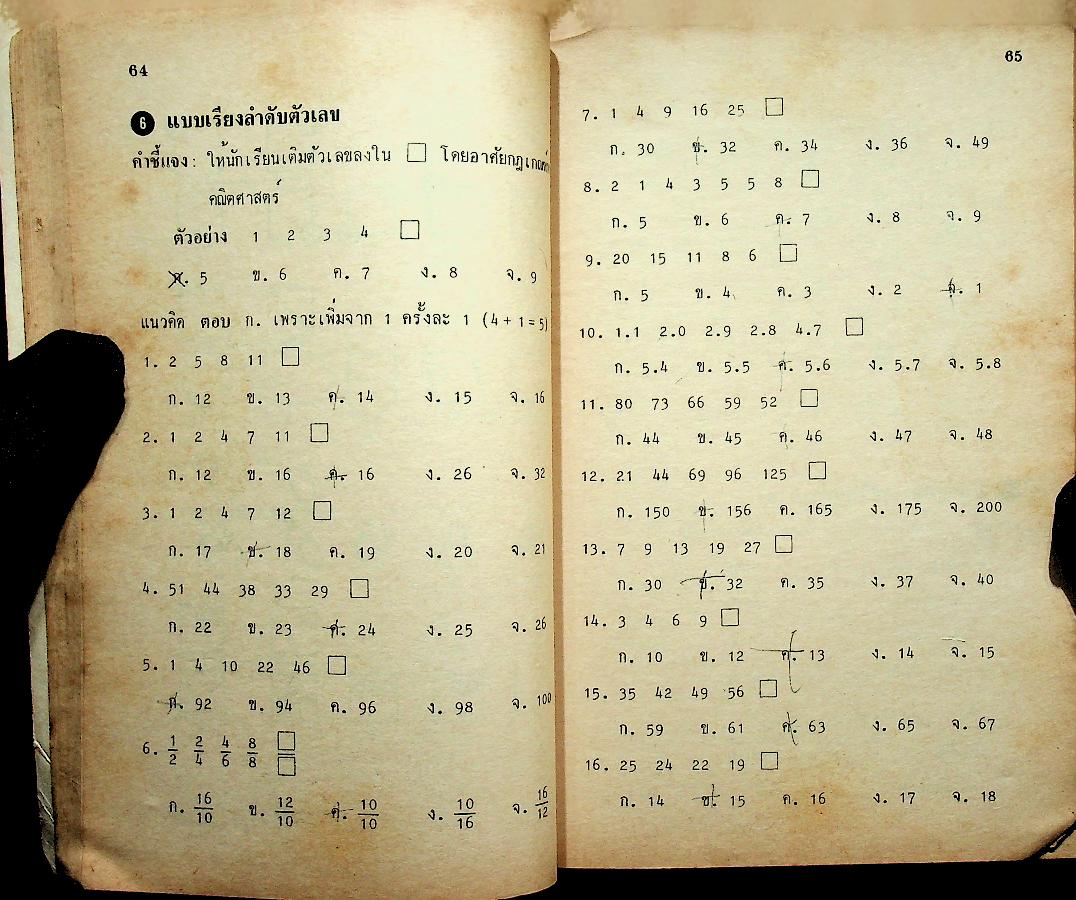 64
6 แบบเรียงลำดับตัวเลข
คำชี้แจง : ให้นักเรียนเติมตัวเลขลงใน □ โดยอาศัยกฎเกณฑ์
คณิตศาสตร์
ตัวอย่าง 1 2 3 4 □
ก. 5 ข. 6 ค. 7 ง. 8 จ. 9
แนวคิด ตอบ ก. เพราะเพิ่มจาก 1 ครั้งละ 1 (4 + 1 = 5)
1. 2 5 8 11 □
ก. 12 ข. 13 ค. 14 ง. 15 จ. 16
2. 1 2 4 7 11 □
ก. 12 ข. 16 ค. 16 ง. 26 จ. 32
3. 1 2 4 7 12 □
ก. 17 ข. 18 ค. 19 ง. 20 จ. 21
4. 51 44 38 33 29 □
ก. 22 ข. 23 ค. 24 ง. 25 จ. 26
5. 1 4 10 22 46 □
ก. 92 ข. 94 ค. 96 ง. 98 จ. 100
6. 1/2 2/4 4/6 8/8 □/□
ก. 16/10 ข. 12/10 ค. 10/10 ง. 10/16 จ. 16/12
65
7. 1 4 9 16 25 □
ก. 30 ข. 32 ค. 34 ง. 36 จ. 49
8. 2 1 4 3 5 5 8 □
ก. 5 ข. 6 ค. 7 ง. 8 จ. 9
9. 20 15 11 8 6 □
ก. 5 ข. 4 ค. 3 ง. 2 จ. 1
10. 1.1 2.0 2.9 2.8 4.7 □
ก. 5.4 ข. 5.5 ค. 5.6 ง. 5.7 จ. 5.8
11. 80 73 66 59 52 □
ก. 44 ข. 45 ค. 46 ง. 47 จ. 48
12. 21 44 69 96 125 □
ก. 150 ข. 156 ค. 165 ง. 175 จ. 200
13. 7 9 13 19 27 □
ก. 30 ข. 32 ค. 35 ง. 37 จ. 40
14. 3 4 6 9 □
ก. 10 ข. 12 ค. 13 ง. 14 จ. 15
15. 35 42 49 56 □
ก. 59 ข. 61 ค. 63 ง. 65 จ. 67
16. 25 24 22 19 □
ก. 14 ข. 15 ค. 16 ง. 17 จ. 18